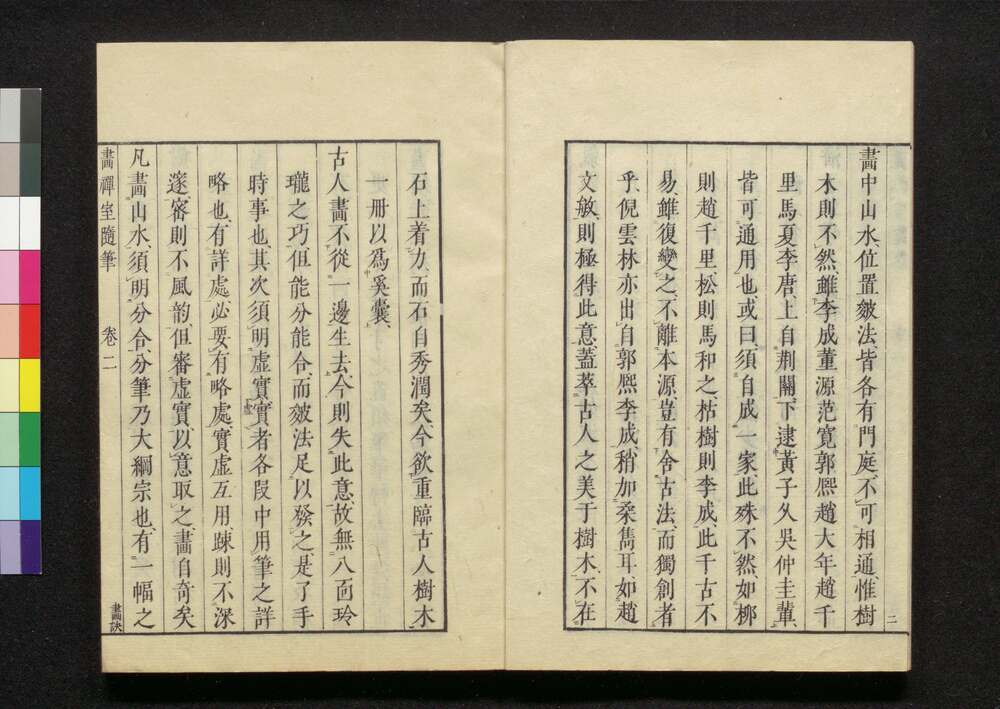 畫中山水、位置皴法、皆各有門庭、不可相通、惟樹
木則不然、雖李成董源范寬郭熈趙大年趙千
里馬夏李唐、上自荆關、下逮黃子久吳仲圭輩、
皆可通用也、或曰、須自成一家、此殊不然、如桺
則趙千里、松則馬和之、枯樹則李成、此千古不
易、雖復變之、不離本源、豈有舍古法、而獨創者
乎、倪雲林亦出自郭熈李成、稍加柔雋耳、如趙
文敏、則極得此意、蓋萃古人之美于樹木、不在
二
石上着力、而石自秀潤矣、今欲重臨古人樹木
一册以爲奚囊、
古人畫不從一邊生去、今則失此意、故無八面玲
瓏之巧、但能分能合、而皴法足以發之、是了手
時事也、其次須明虛實、實者各段中用筆之詳
略也、有詳處必要有略處、實虛互用、疎則不深
邃、密則不風韵、但審虛實、以意取之、畫自奇矣
凡畫山水、須明分合、分筆乃大綱宗也、有一幅之
畫禪室隨筆 卷二
畫訣